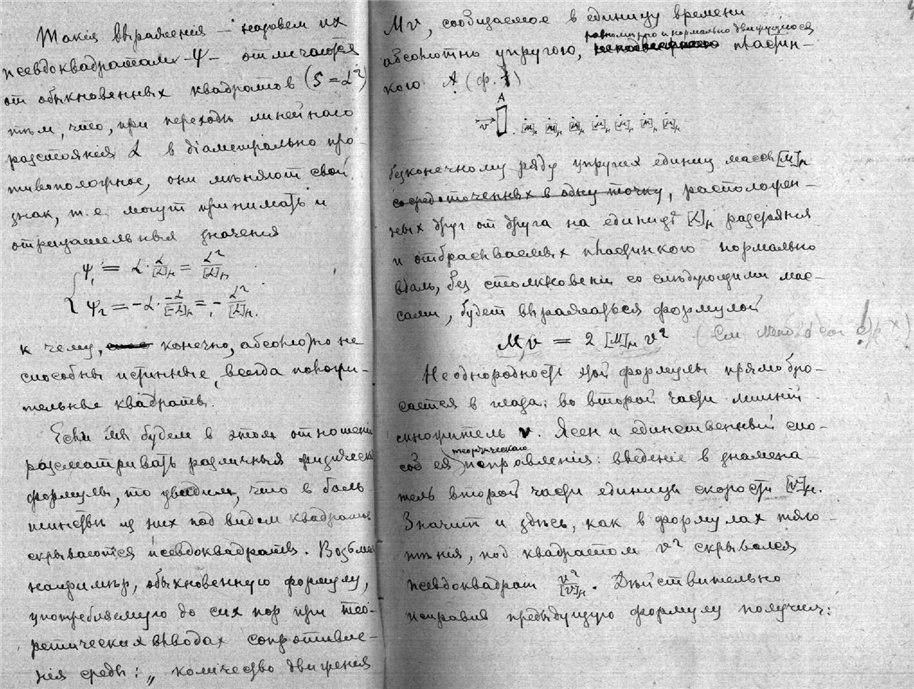 Такія выраженія – назовем их
псевдоквадратами – ψ – отличаются
от обыкновенных квадратов (S = L²)
тѣм, что, при переходѣ линейнаго
разстоянія L в діаметрально про
тивоположное, они мѣняют свой
знак, т. е. могут принимать и
отрицательныя значенія
ψ₁ = L · L/[L]ₙ = L²/[L]ₙ
ψ₂ = -L · -L/[-L]ₙ = - L²/[L]ₙ.
к чему, конечно, абсолютно не
способны истинные, всегда положи-
тельные квадраты.
Если мы будем в этом отношени
разсматривать различныя физическ
формулы, то увидим, что в боль-
шинствѣ из них под видом квадрат
скрываются псевдоквадраты. Возьме
напримѣр, обыкновенную формулу,
употребляемую до сих пор при тео-
ретических выводах сопротивле-
нія среды: „ количество движенія
Mv, сообщаемое в единицу времени
равномѣрно и нормально движущейся
абсолютно упругою, пластин-
кого A (ф. 1)
A
v [M]ₙ [M]ₙ [M]ₙ [M]ₙ [M]ₙ [M]ₙ [M]ₙ
безконечному ряду упругих единиц массы [M]ₙ
сосредоточенных в одну точку, расположен-
ных друг от друга на единицѣ [L]ₙ разстоянія
и отбрасываемых пластинкого нормально
вдаль, без столкновенія со слѣдующими мас-
сами, будет выражаться формулой
M₁v = 2 [M]ₙ v² (См.
Неоднородность этой формулы прямо бро-
сается в глаза: во второй части лишній
множитель v. Ясен и единственный спо-
теоретическаго
соб ея исправленія: введеніе в знамена-
тель второй части единицы скорости [v]ₙ.
Значит и здѣсь, как в формулах тяго-
тѣнія, под квадратом v² скрывался
псевдоквадрат v²/[v]ₙ. Дѣйствительно
исправив предыдущую формулу получим: